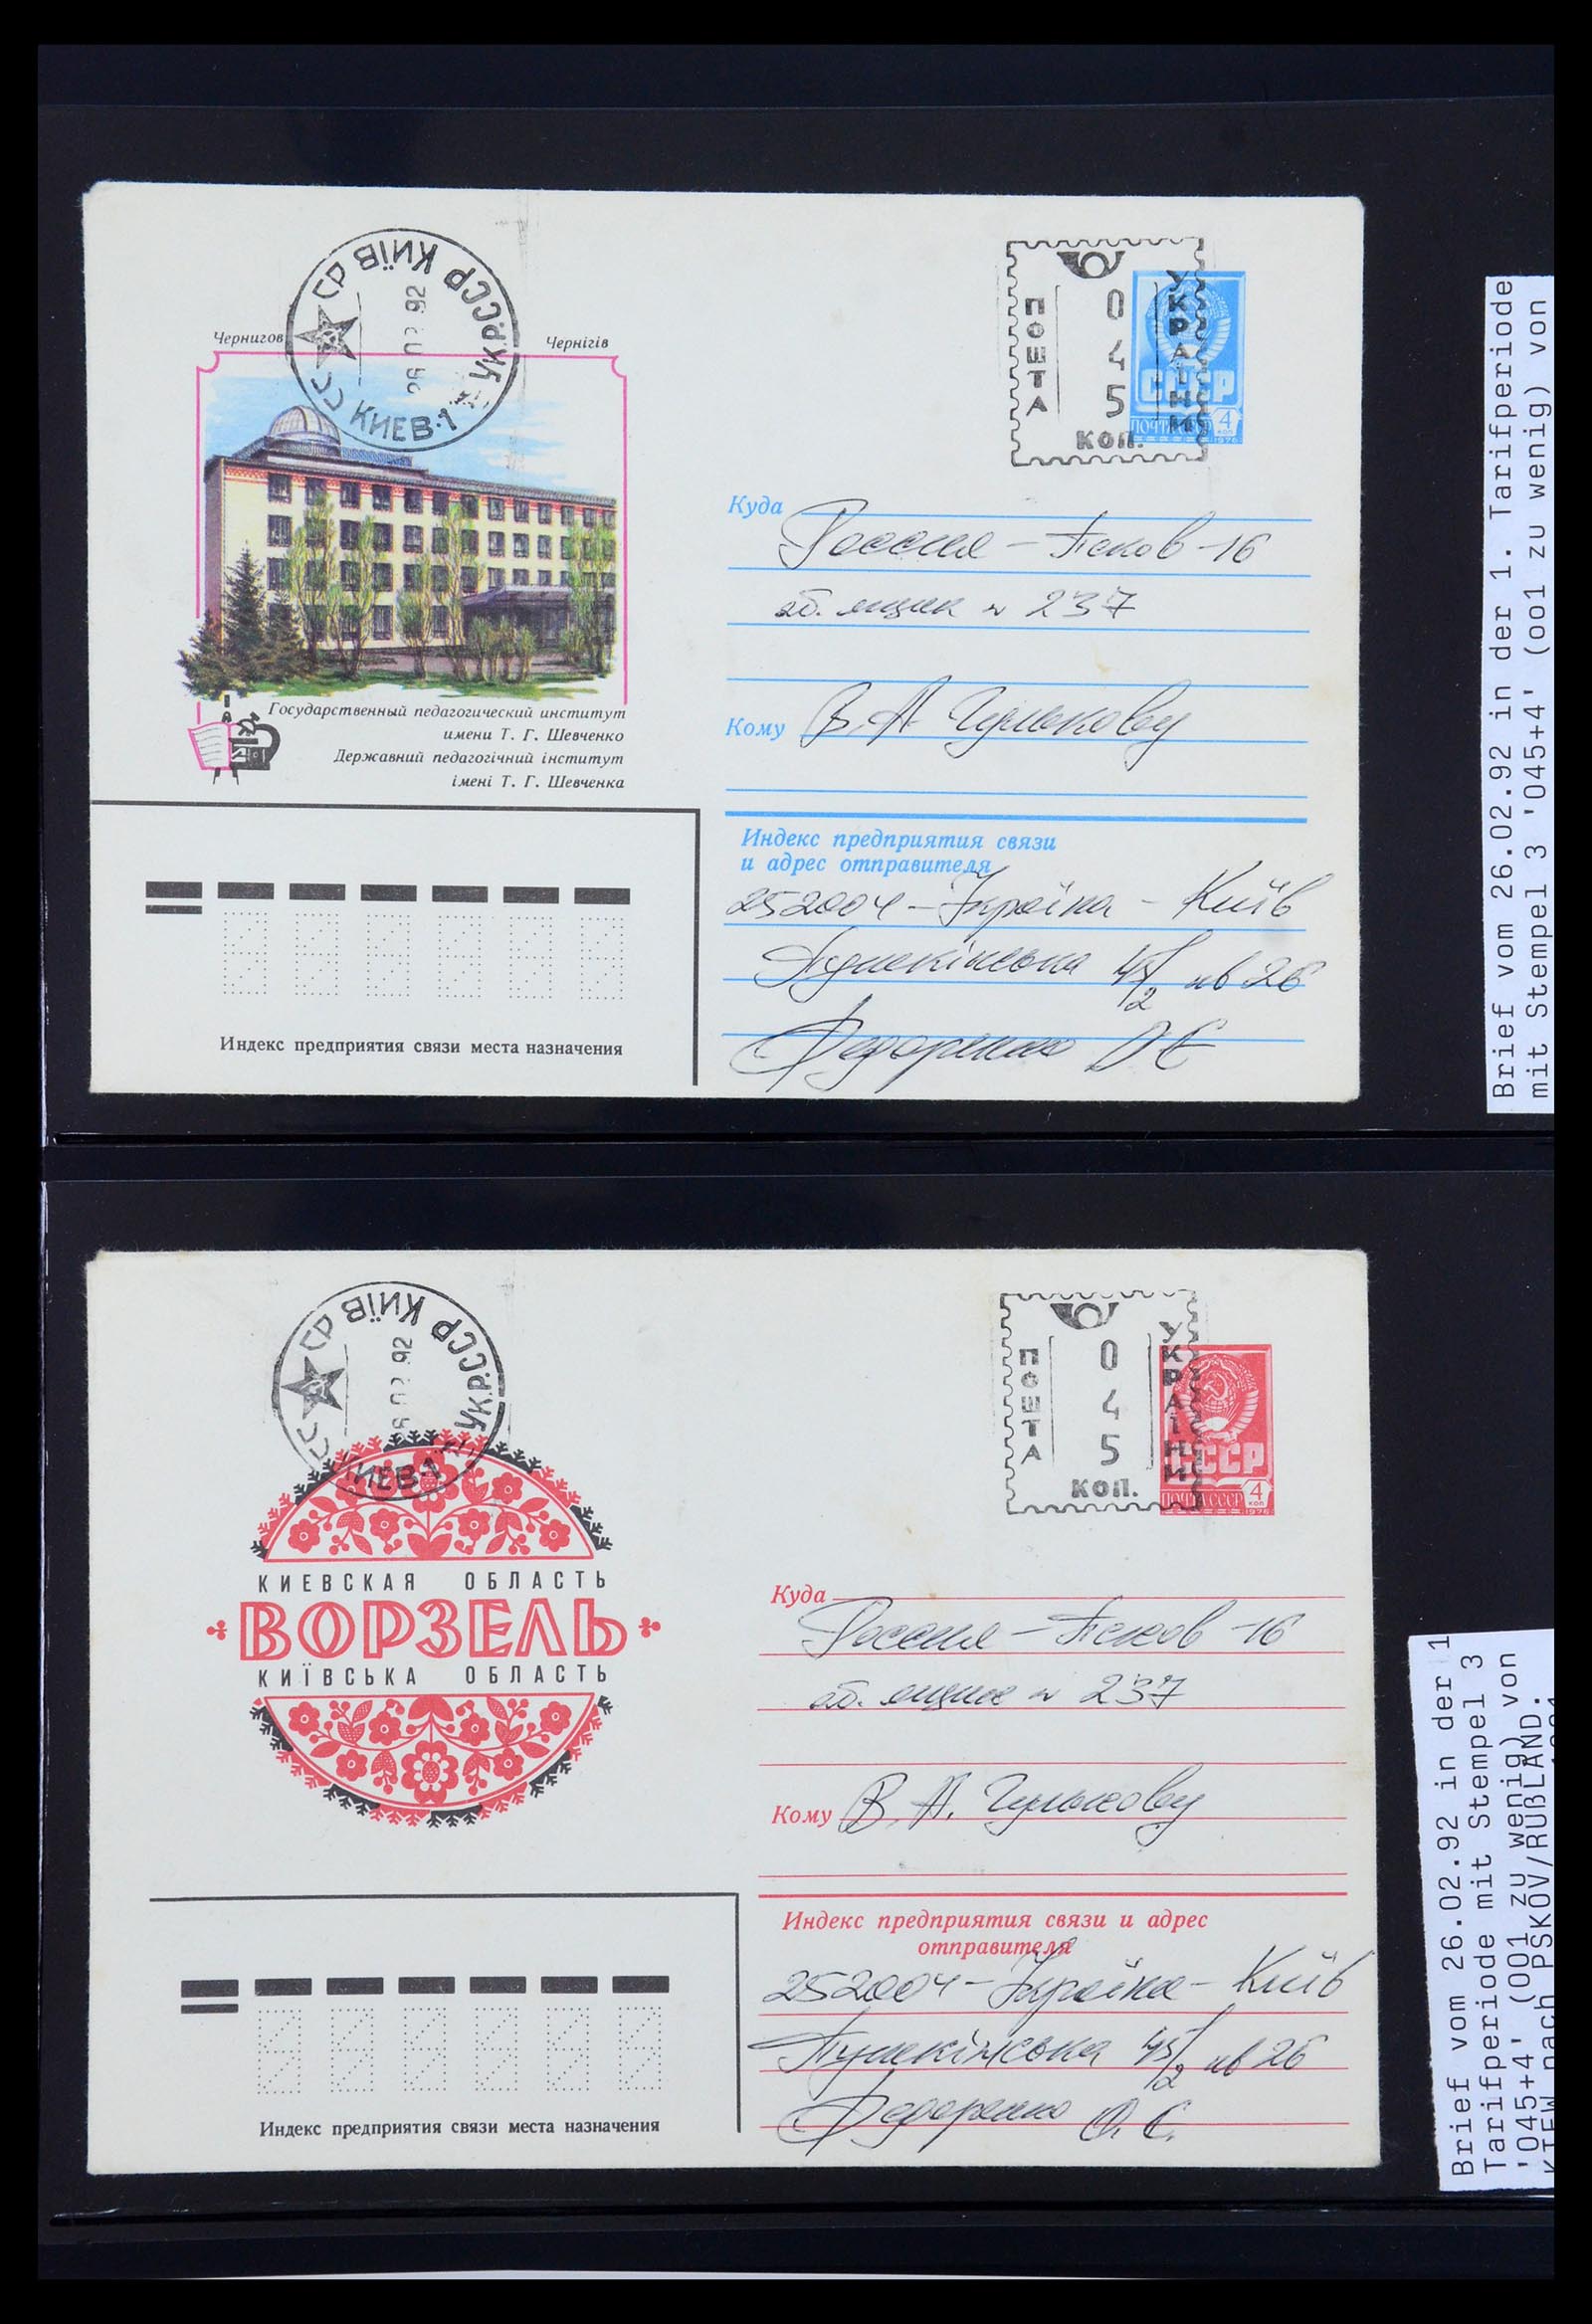 СССР КИЇВ УКР.СССР
26 02 92
КИЕВ-1
Чернигов
Чернігів
ПОШТА
045
КОП.
УКРАЇНИ
СССР
ПОЧТА СССР 4 КОП
1976
Куда
Россия - Псков-16
аб. ящик N 237
Кому
В. А.
Государственный педагогический институт
имени Т. Г. Шевченко
Державний педагогічний інститут
імені Т. Г. Шевченка
Индекс предприятия связи
и адрес отправителя
252004 - Україна - Київ
Пушкінська 45/2 кв 26
Федоренко
Индекс предприятия связи места назначения
Brief vom 26.02.92 in der 1. Tarifperiode
mit Stempel 3 '045+4' (oo1 zu wenig) von
КИЇВ УКР.СССР
02 92
КИЕВ-1
ПОШТА
045
КОП.
УКРАЇНИ
СССР
ПОЧТА СССР 4 КОП
1976
КИЕВСКАЯ ОБЛАСТЬ
ВОРЗЕЛЬ
КИЇВСЬКА ОБЛАСТЬ
Куда
Россия - Псков-16
аб. ящик N 237
Кому
В. А.
Индекс предприятия связи и адрес
отправителя
252004 - Україна - Київ
Пушкінська 45/2 кв 26
Федоренко О. Є.
Индекс предприятия связи места назначения
Brief vom 26.02.92 in der 1
Tarifperiode mit Stempel 3
'045+4' (001 zu wenig) von
KIEW nach PSKOV/RUßLAND.